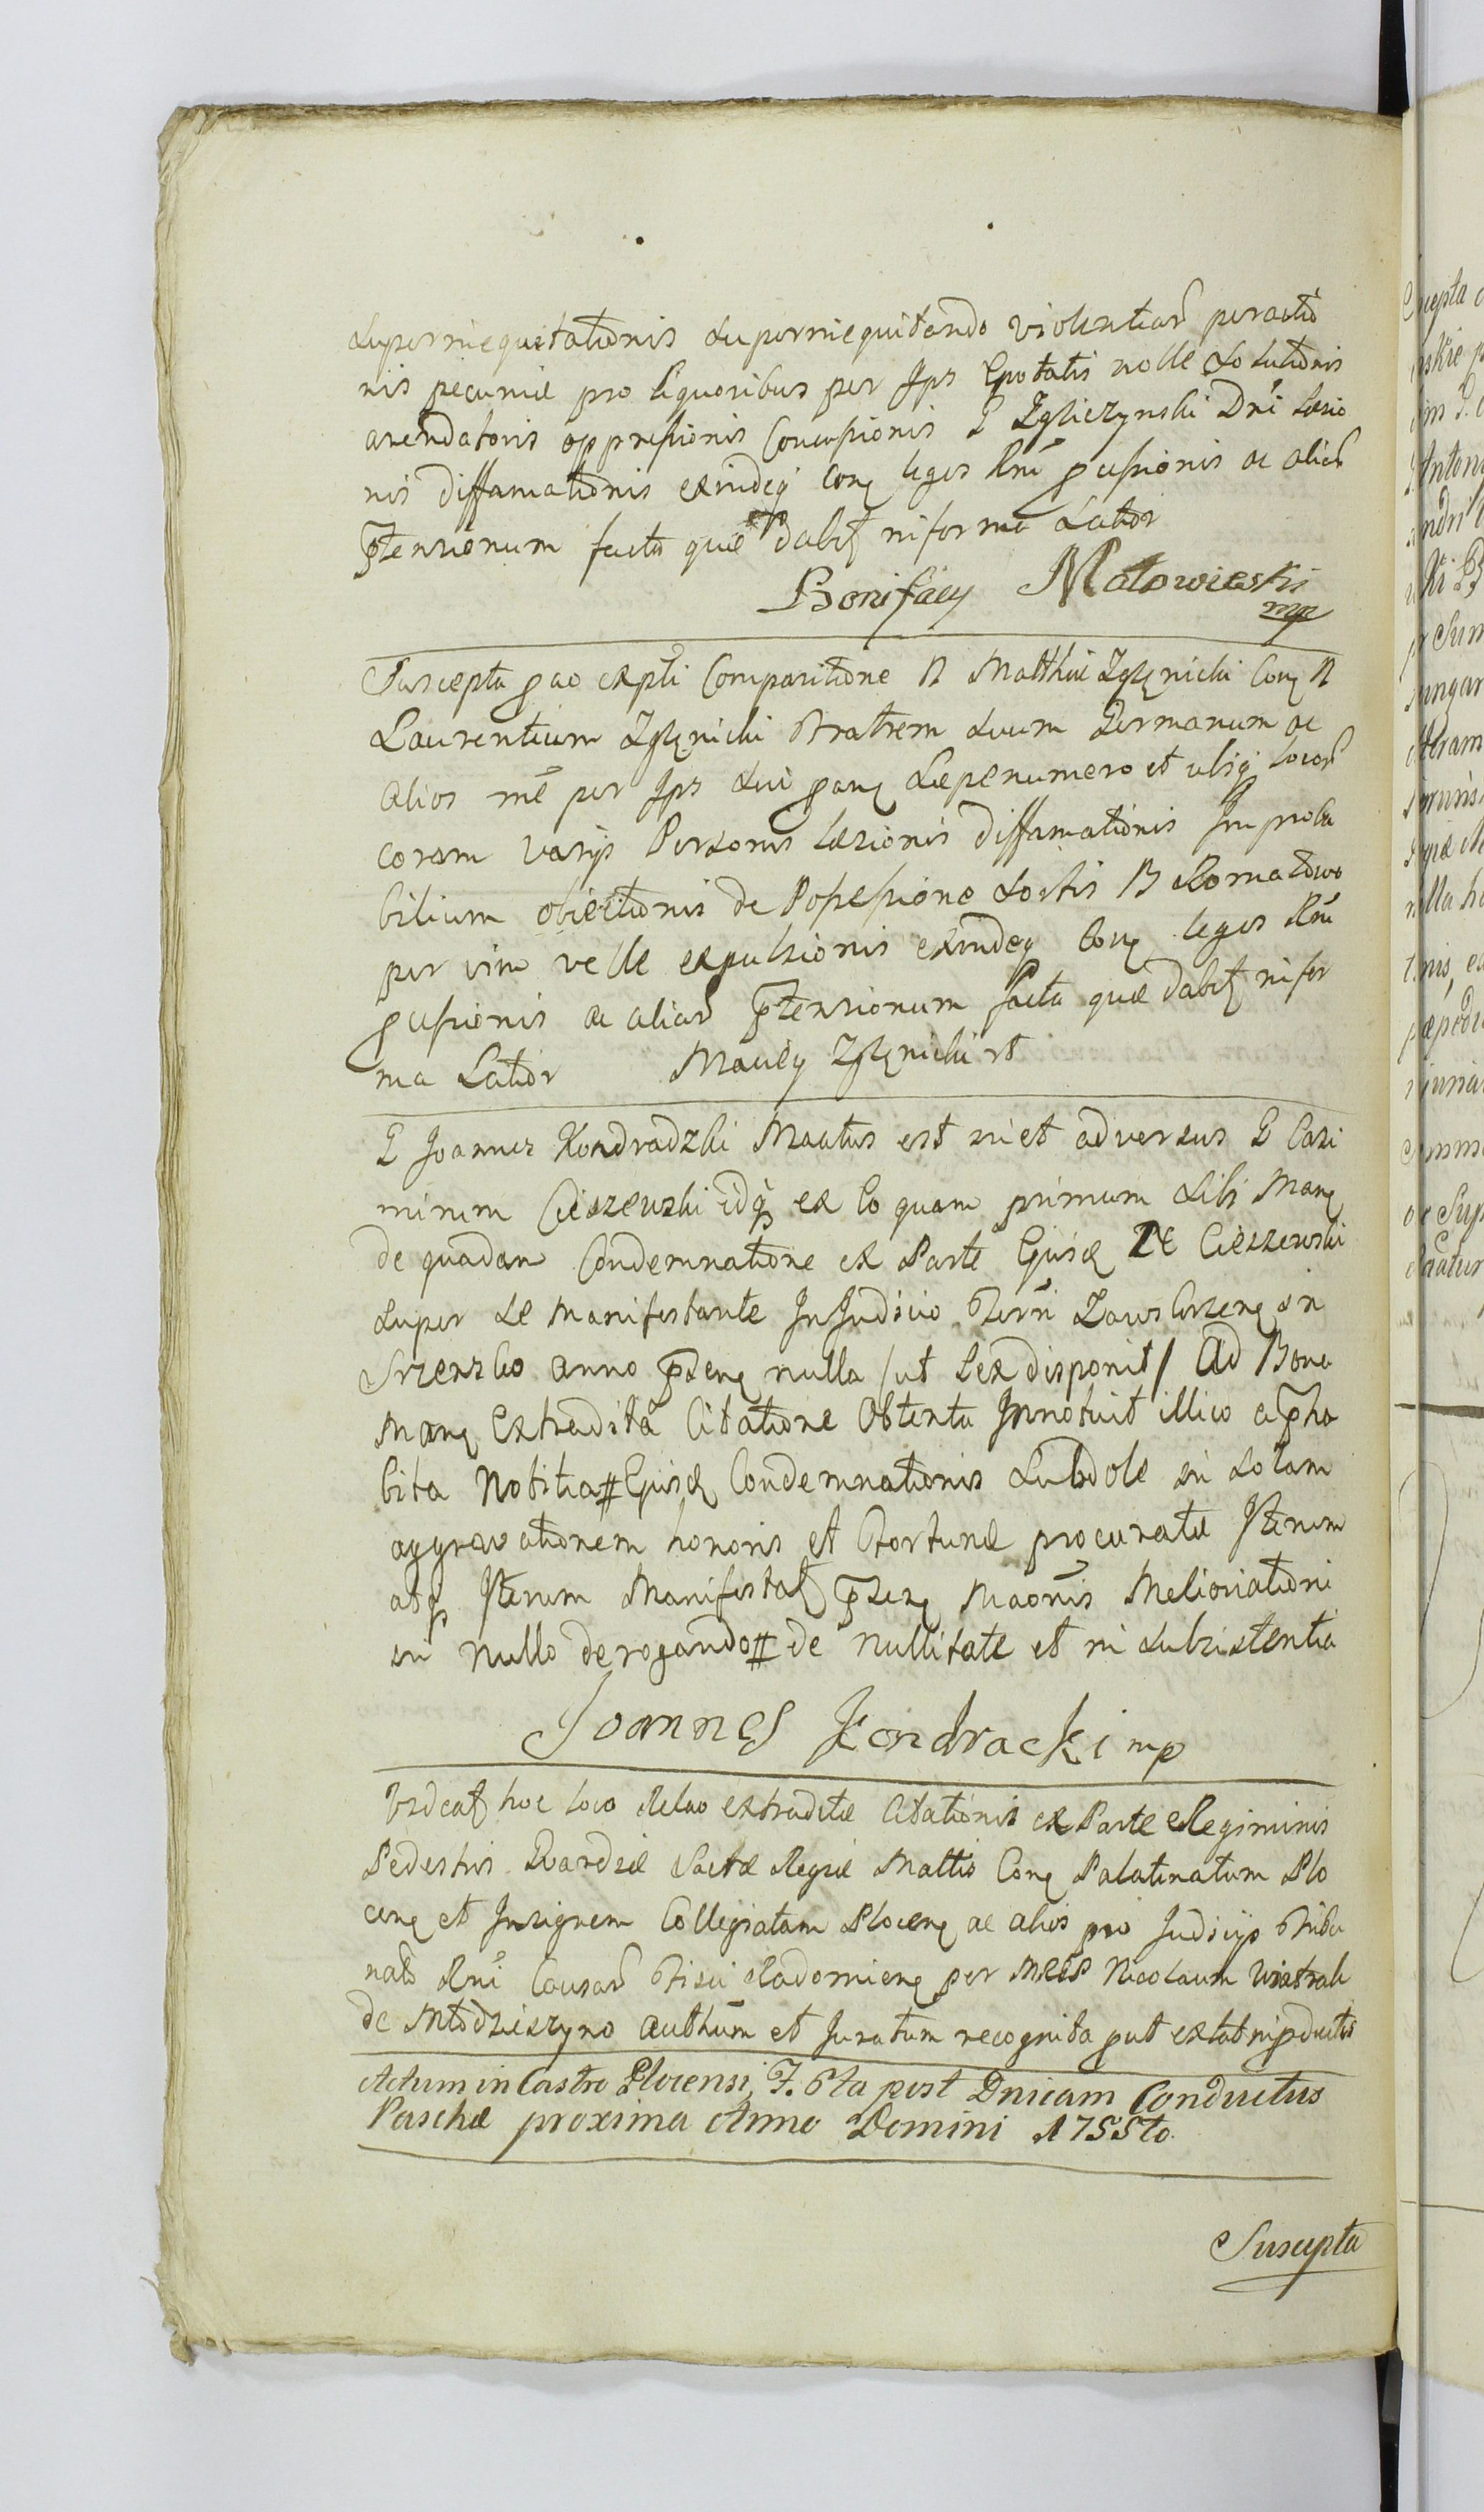 superinequitationis superinequitando violentiar peractio
nis pecuniæ pro liquoribus per Ips Epotatis nolle solutionis
arendatoris oppressionis Concussionis G Zgliczynski Dni læsio
nis diffamationis exindeq Conę leges Rni pcussionis ac aliar
ptensionum facta quæ dabit in forma latior
Bonifacy Małowieski
mp
Suscepta pao expti Comparitione N Matthiæ Zglenicki Conę N
Laurentium Zglenicki Fratrem suum Germanum ac
alios rne per Ips sui panę sæpenumero et ubiq locor
coram varijs Personis læsionis diffamationis Improba
bilium obiectionis de Possessione sortis B Romatowo
per vim velle expulsionis exindeq Conę leges Rni
pcussionis ac aliar ptensionum facta quæ dabit in for
ma latior Maciey Zglenicki rt
G Joannes Kondradzki Maatus est in et adversus G Casi
mirum Cieszewski idq ex Eo quam primum sibi Manę
de quadam Condemnatione ex Parte Ejusd G Cieszewski
super se Manifestante In Judicio Terri Zawskrzenę in
Srzensko anno pdenę nulla /ut lex disponit/ Ad Bona
Manę Extradita Citatione Obtenta Innotuit illico a pha
bita Notitia # Ejusd Condemnationis subdole in solam
aggravationem honoris et Fortunæ procuratæ Iterum
atq Iterum Manifestat ptzenę Maonis Melioriationi
in Nullo derogando # de nullitate et in subsistentia
Joannes Kondracki mp
Videat hoc loco Relao extraditæ Citationis ex Parte Regiminis
Pedestris Gvardiæ Sacræ Regiæ Mattis Conę Palatinatum Plo
cenę et Insignem Collegiatam Plocenę ac alios pro Judicijs Tribu
nalis Rni Causar Fisci Radomienę per Nicolaum Wiatrak
de Młodzieszyno Authum et Juratum recognita put extat in pductis
Actum in Castro Plocensi, F. 6ta post Dnicam Conductus
Paschæ proxima Anno Domini 1755to.
Suscepta